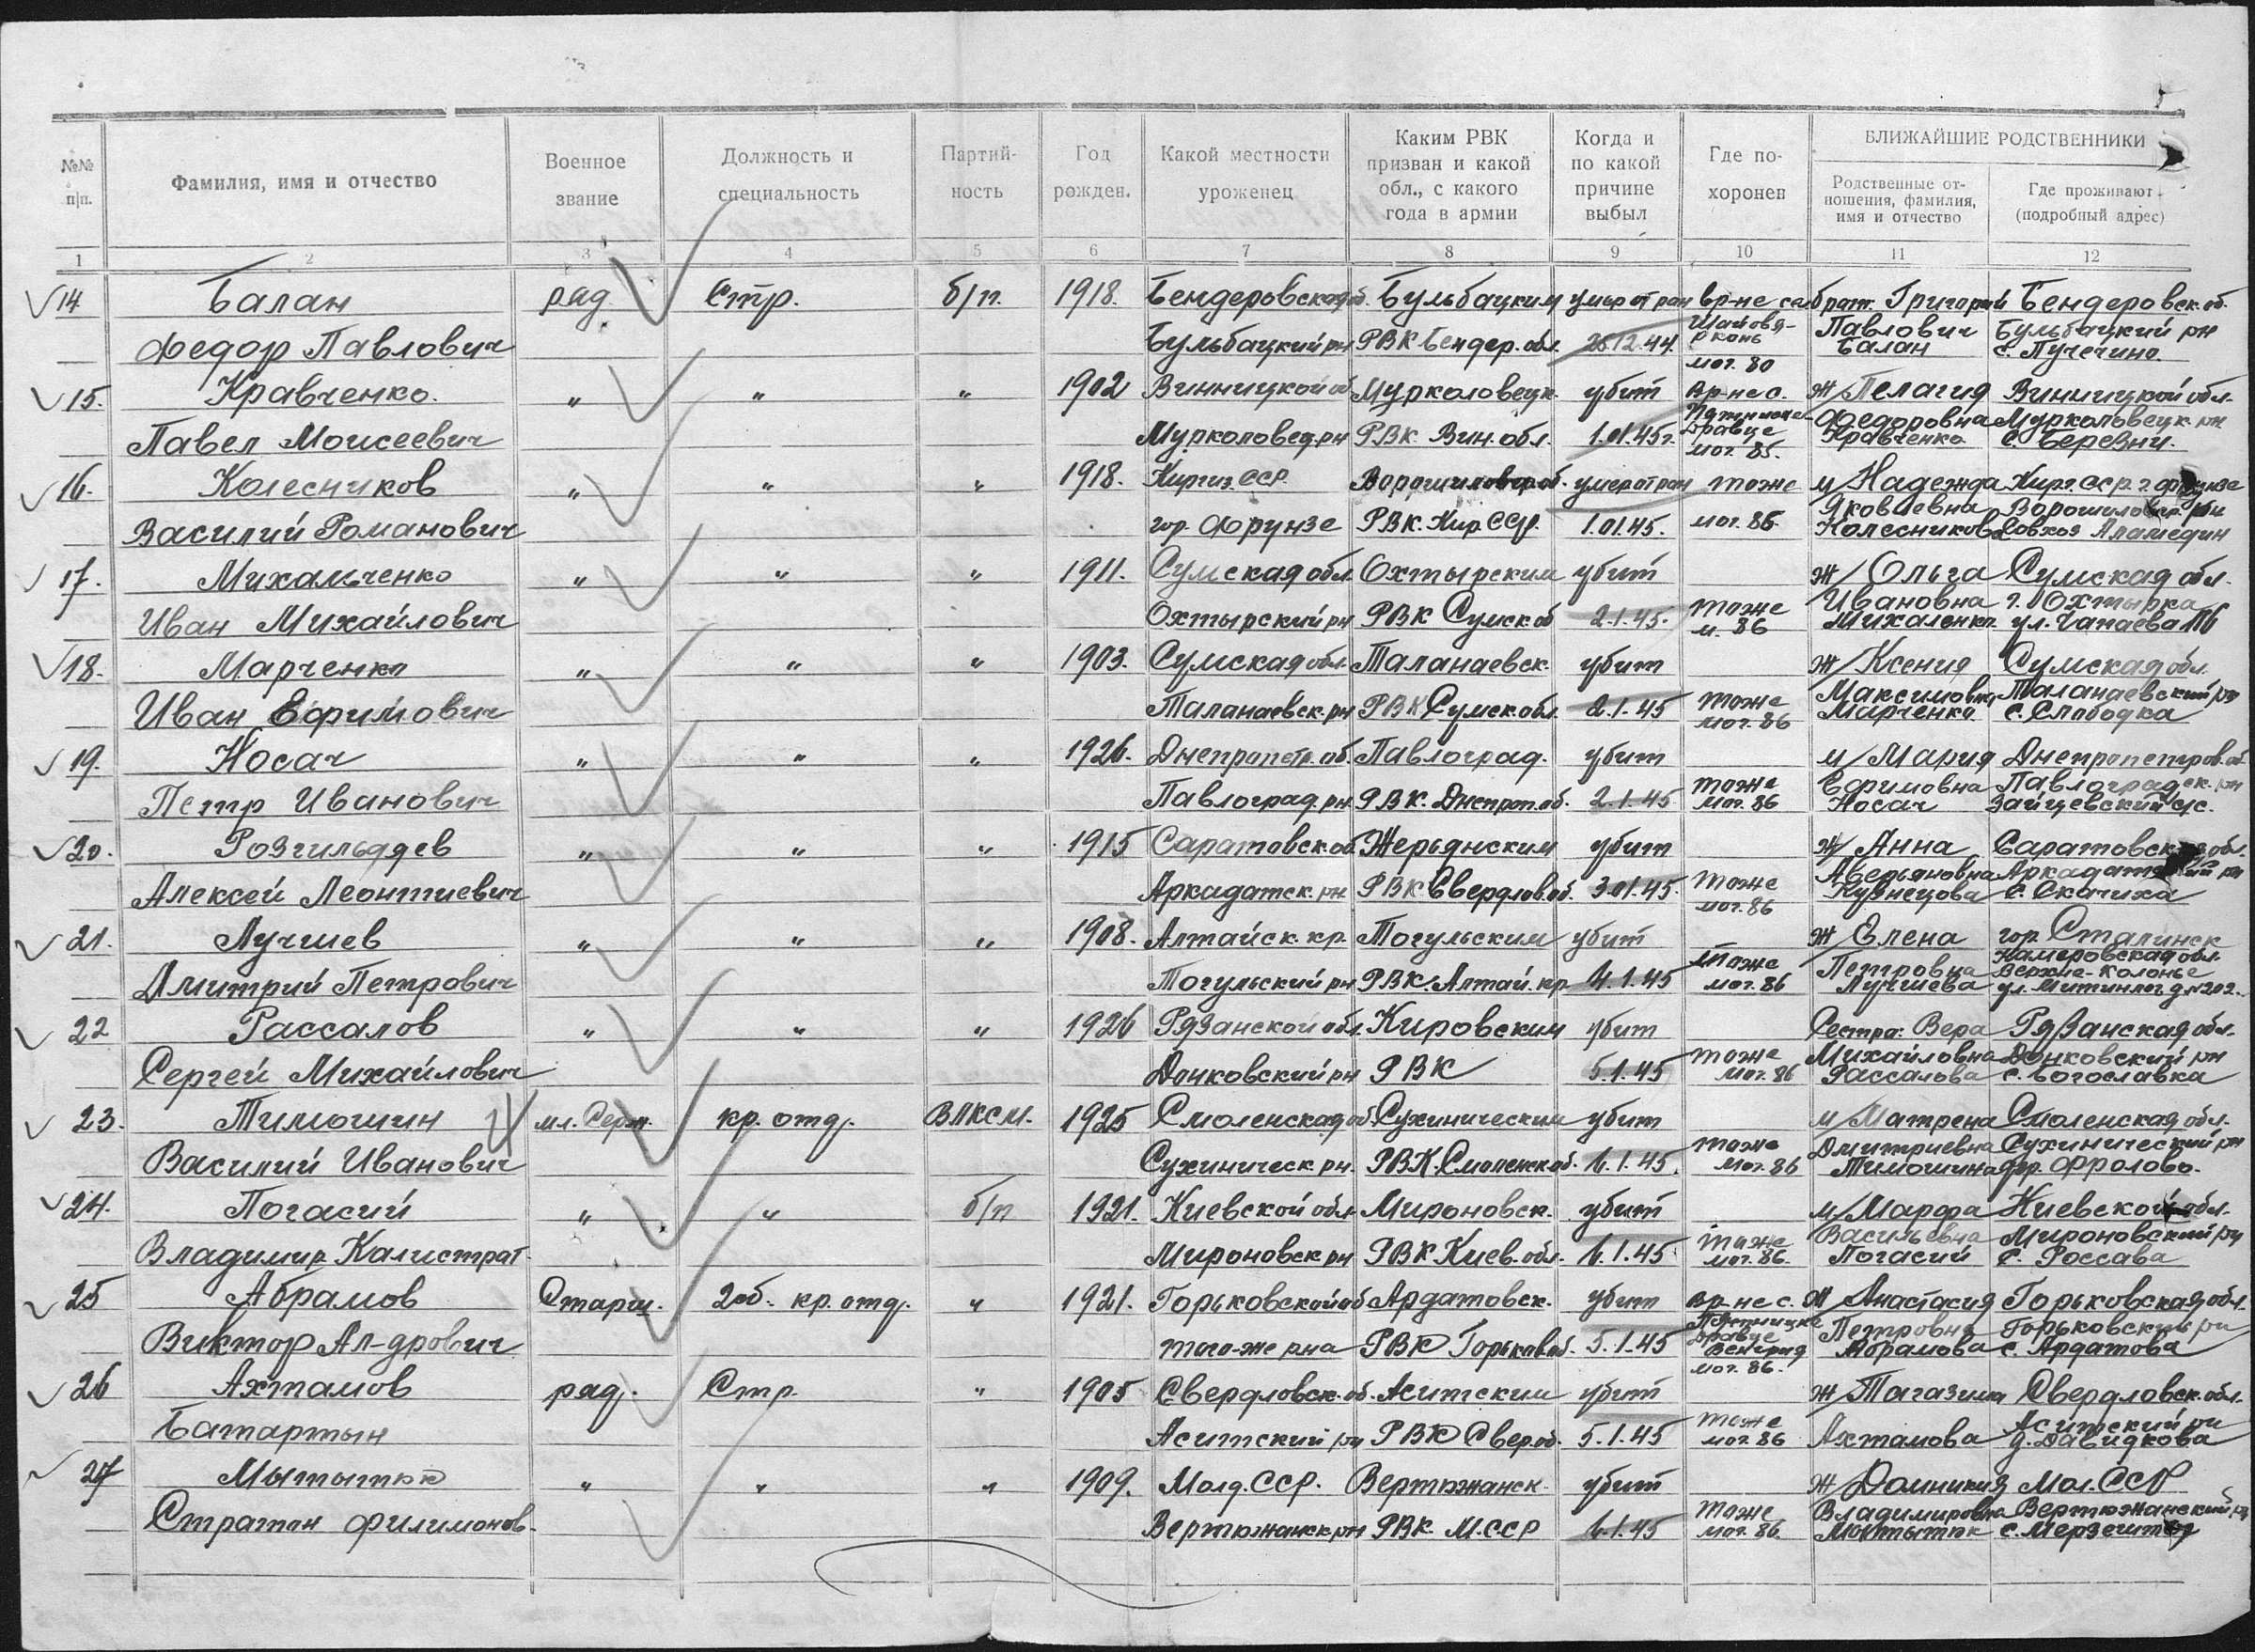 №№ п|п.
Фамилия, имя и отчество
Военное звание
Должность и специальность
Партий-ность
Год рожден.
Какой местности уроженец
Каким РВК призван и какой обл., с какого года в армии
Когда и по какой причине выбыл
Где по-хоронен
БЛИЖАЙШИЕ РОДСТВЕННИКИ
Родственные от-ношения, фамилия, имя и отчество
Где проживают (подробный адрес)
1 2 3 4 5 6 7 8 9 10 11 12
14 Балан ряд. Стр. б/п. 1918. Бендеровской об. Бульбацким умер от ран вр-не брат. Григорий Бендеровск. об.
Федор Павлович Бульбацкий рн РВК Бендер. обл. 25.12.44. мог. 80 Павлович Балан Бульбацкий рн с. Пучечино
15. Кравченко. " " " 1902 Винницкой об Мурколовецк. убит вр-не с. ж/Пелагия Винницкой обл.
Павел Моисеевич Мурколовец. рн РВК Вин. обл. 1.01.45г. мог. 85. Федоровна Кравченко Мурколовецк. рн с. Березни.
16. Колесников " " " 1918. Киргиз. ССР. умер от ран тоже м/Надежда Кирг. ССР. г. Фрунзе
Василий Романович гор. Фрунзе РВК. Кир. ССР. 1.01.45. мог. 86. Яковлевна Колесникова совхоз Аламедин
17. Михальченко " " " 1911. Сумская обл. Охтырским убит ж/Ольга Сумская обл.
Иван Михайлович Охтырский рн РВК Сумск об 2.1.45. тоже м. 86 Ивановна Михаленко г. Охтырка ул. Чапаева 116
18. Марченко " " " 1903. Сумская обл. Таланаевск. убит ж/Ксения Сумская обл.
Иван Ефимович Таланаевск. рн РВК Сумск. обл. 2.1.45 тоже мог. 86 Максимовна Марченко Таланаевский рн с. Слободка
19. Носач " " " 1926. Днепропетр. об. Павлоград. убит м/Мария Днепропетров. об.
Петр Иванович Павлоград. рн. РВК. Днепроп. об. 2.1.45 тоже мог. 86 Ефимовна Носач Павлоградск. рн Зайцевский с/с.
20. Розгильдяев " " " 1915 Саратовск. об. Жерьянским убит ж/Анна Саратовская обл.
Алексей Леонтиевич Аркадатск. рн. РВК Свердлов. об. 3.01.45. тоже мог. 86 Аверьяновна Кузнецова с. Скачиха
21. Лучшев " " " 1908. Алтайск. кр. Тогульским убит ж/Елена гор. Сталинск
Дмитрий Петрович Тогульский рн РВК. Алтай. кр 4.1.45 тоже мог. 86 Петровна Лучшева Кемеровская обл. Верхне-колонье
22 Рассалов " " " 1926 Рязанской обл. Кировским убит Сестра: Вера Рязанская обл.
Сергей Михайлович Донковский рн РВК 5.1.45 тоже мог. 86 Михайловна Рассалова Донковский рн с. Богославка
23. Тимошин мл. Серж. кр. отд. ВЛКСМ. 1925 Смоленская об Сухиническим убит м/Матрена Смоленская обл.
Василий Иванович Сухиническ. рн. РВК. Смоленск об. 6.1.45. тоже мог. 86 Дмитриевна Тимошина Сухинический рн дер. Фролово.
24. Погасий " " б/п 1921. Киевской обл Мироновск. убит м/Марфа Киевской обл.
Владимир Калистрат. Мироновск рн РВК Киев. обл. 6.1.45 тоже мог. 86. Васильевна Погасий Мироновский рн с. Россава
25 Абрамов Старш. кр. отд. " 1921. Горьковской об Ардатовск. убит вр-не с. ж Анастасия Горьковская обл.
Виктор Ал-дрович того-же рна РВК Горьков об. 5.1.45 Венгрия мог. 86. Петровна Абрамова Горьковский рн с. Ардатова
26 Ахтамов ряд. Стр. " 1905 Свердловск. об. Аситским убит ж/ Свердловск. обл.
Батартын Аситский рн РВК Свер. об. 5.1.45 тоже мог. 86 Ахтамова Аситский рн д. Давидкова
27 Мытытюк " " " 1909. Молд. ССР. Вертюжанск. убит ж/Домникия Мол. ССР
Стратон Филимонов. Вертюжанск рн РВК. М.ССР 6.1.45 тоже мог. 86. Владимировна Мытытюк Вертюжанский рн